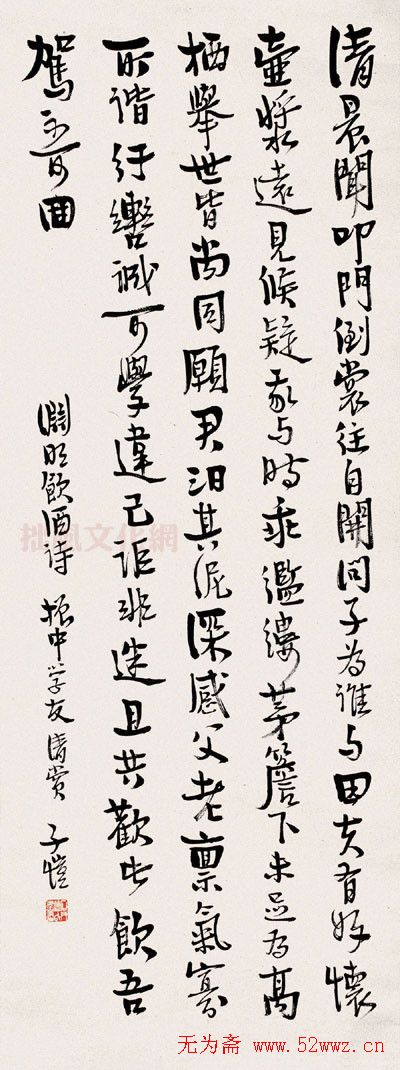 清晨聞叩門倒裳往自開問子為誰与田夫有好懷
壺漿遠見候疑我与時乖襤縷茅簷下未足為高
栖舉世皆尚同願君汩其泥深感父老稟氣寡
所諧紆轡誠可學違己詎非迷且共歡此飲吾
駕不可回
淵明飲酒詩 振中学友清赏 子愷
拙風文化網
无为斋 www.52wwz.cn